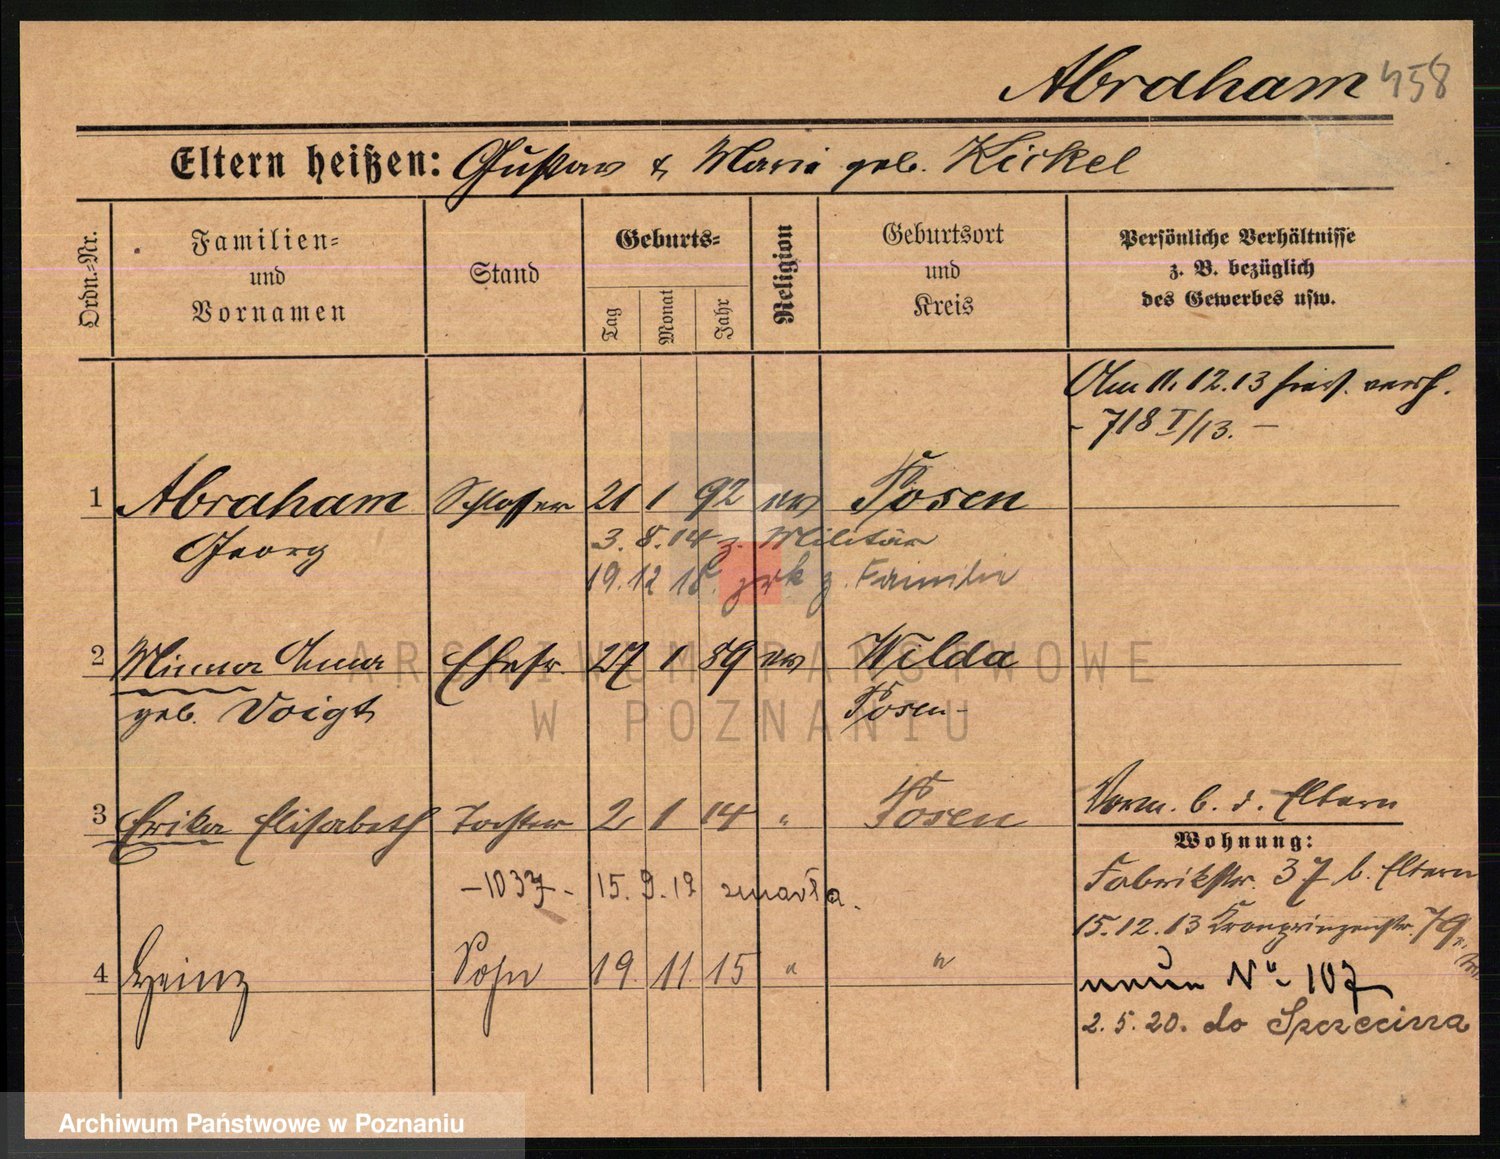 Abraham 458
Eltern heißen: Gustav & Marie geb. Kickel
Ordn.=Nr.
Familien= und Vornamen
Stand
Geburts=
Tag Monat Jahr
Religion
Geburtsort und Kreis
Persönliche Verhältnisse
z. B. bezüglich
des Gewerbes usw.
Am 11.12.13 hier verh.
- 718 I/13. -
1 Abraham Schlosser 21 1 92 ev Posen
Georg 3.8.14 z. Militär
19.12.18. zrk z. Familie
2 Minna Anna Ehefr. 27 1 89 ev Wilda
geb. Voigt Posen-
3 Erika Elisabeth Tochter 2 1 14 " Posen
-1037- 15.9.17 zmarła.
4 Heinz Sohn 19. 11. 15 " "
Vorm. b. d. Eltern
Wohnung:
Fabrikstr. 37 b. Eltern
15.12.13 Kronprinzenstr. 79
neue No 107
2.5.20. do Szczecina
ARCHIWUM PAŃSTWOWE
W POZNANIU
Archiwum Państwowe w Poznaniu